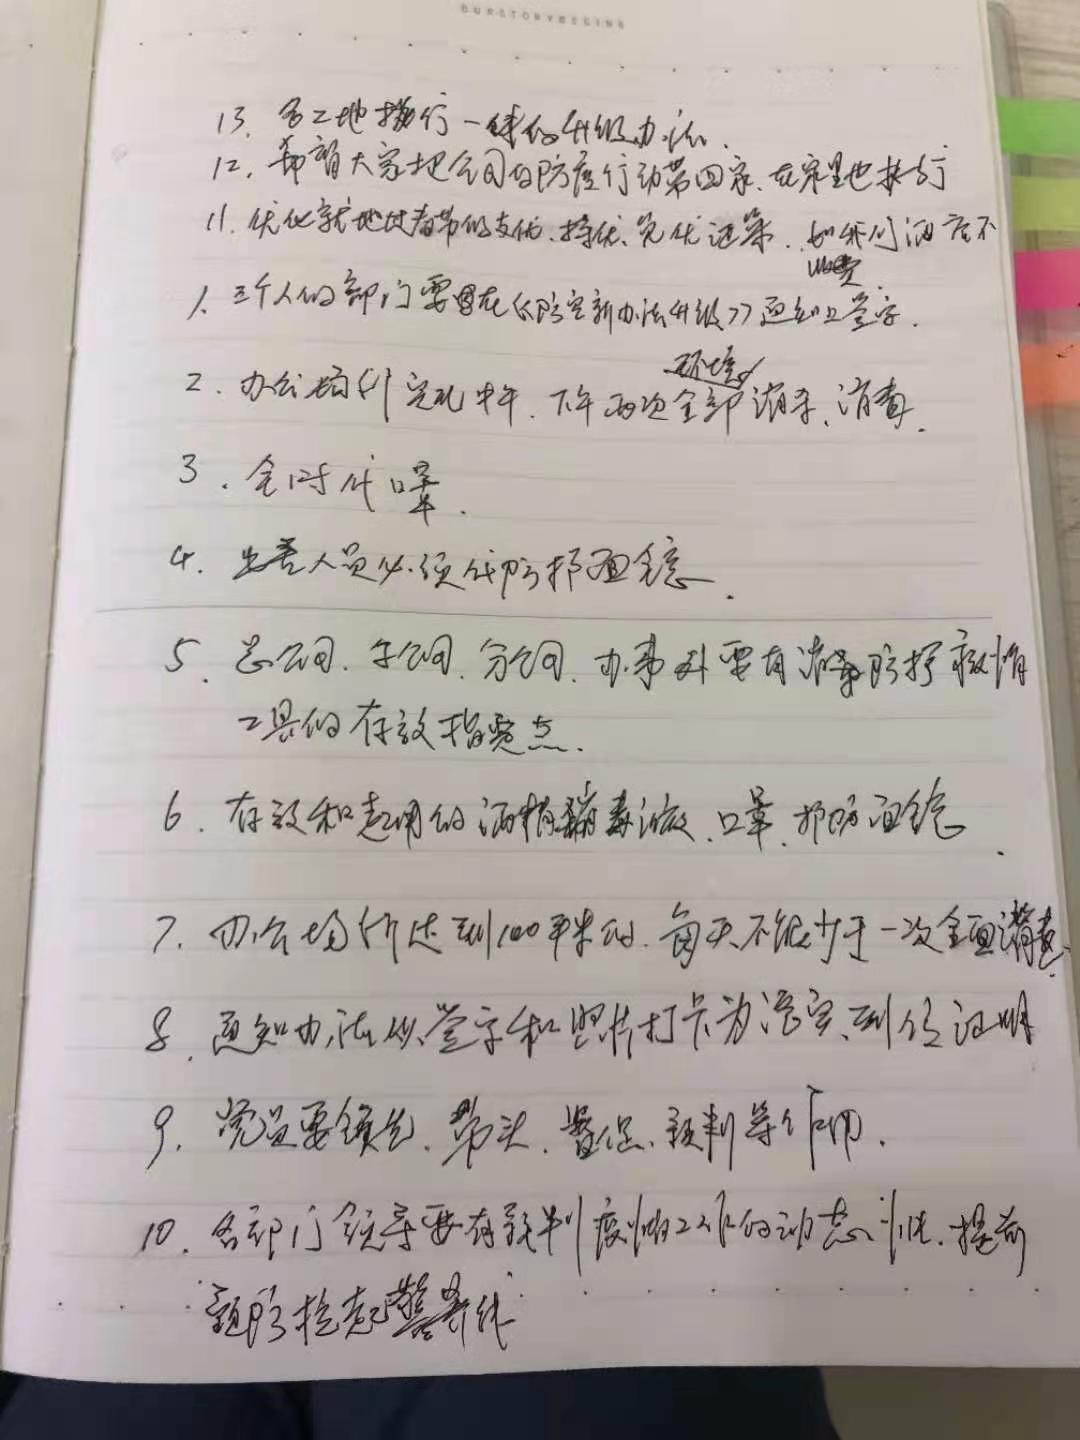 OURSTORYBEGINS
13. 各工地执行一样的升级办法.
12. 希望大家把公司的防疫行动带回家、在家里也执行
11. 优化就地过春节的支优、择优、完优政策、如
1. 三个人的部门要在《防疫新办法升级》通知上签字.
环境
2. 办公场所完礼中午、下午两次全部消杀、消毒.
3. 全时代口罩.
4. 出差人员必须代防护面镜.
5. 总公司、子公司、分公司、办事处要有消毒防护疫情
工具的存放指定点.
6. 存放和起用的酒精消毒液、口罩、护防面镜.
7. 办公场所达到100平米的、每天不能少于一次全面消毒.
8. 通知办法以签字和照片打卡为落实、到位证明
9. 党员要领先、带头、督促、预判等作用.
10. 各部门领导要有预判疫情工作的动态性、提前
预防拉起警界线